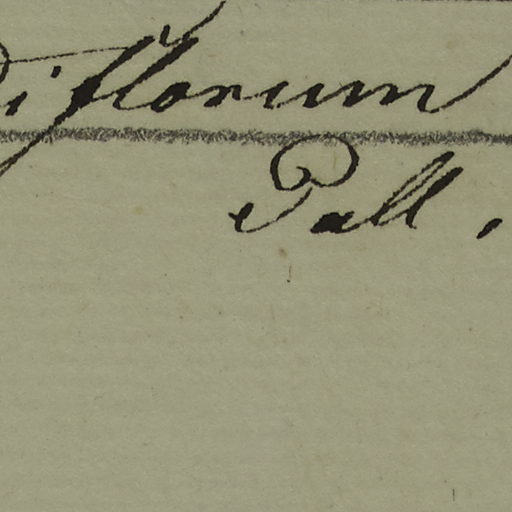 iflorum
Pall.